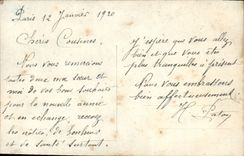 Paris 12 Janvier 1920
Cheris Cousines
Nous vous remercions
toutes deux ma sœur et
moi de vos bons souhaits
pour la nouvelle année
et en échange recevez
les nôtres, de bonheur
et de santé surtout.
J'espère que vous allez
bien et que vous êtes
plus tranquilles à présent
Nous vous embrassons
bien affectueusement
H.